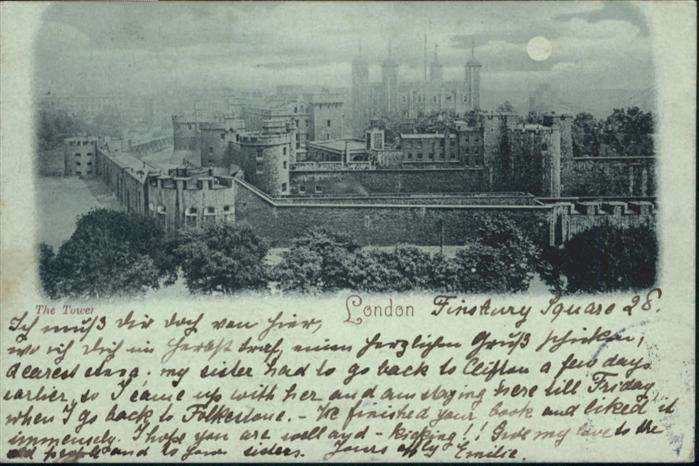 The Tower London Finsbury Square 28.
Ich muß Dir doch von hier,
wo ich Dich im Herbst traf, einen herzlichen Gruß schicken,
dearest . my sister had to go back to Clifton a few days
earlier, so I came up with her and am staying here till Friday
when I go back to Folkestone. - I've finished your book and liked it
immensely. I hope you are well and - kicking!! Give my love to the
old people and to your sisters. Yours affly Emilie.